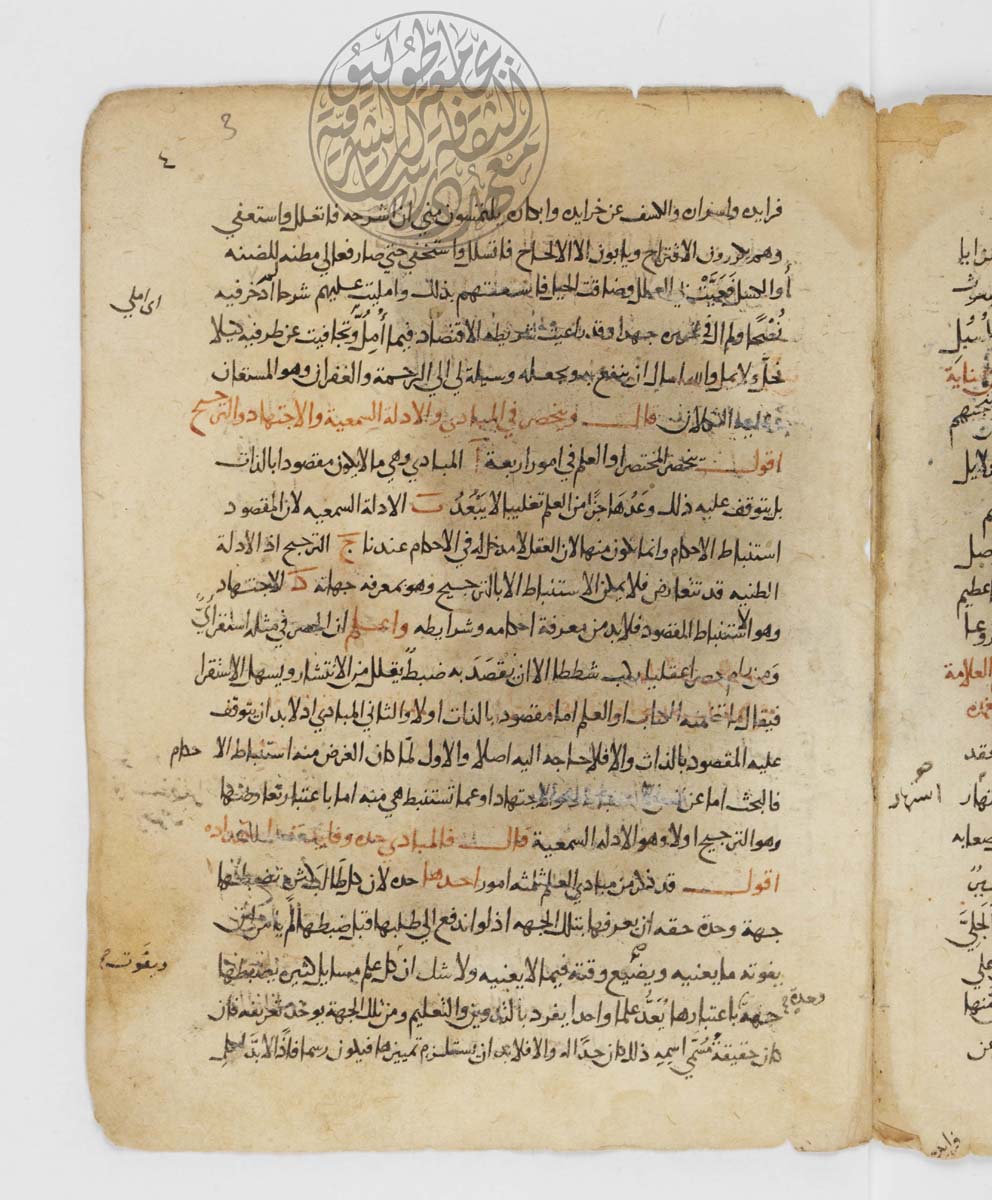 ٤
3
فرايده واسفران والكشف عن خرايده وابكاره يلتمسون مني ان اشرحه فاتعلل واستعفي
وهم يكررون الاقتراح ويابون الا الالحاح فاتسلل واستخفي حتي صار فعالي مطنه للضنه
أو الكسل فعييت بي العلل وضاقت الحيل فاسعفتهم بذلك وامليت عليهم شرحا لم ادخر فيه
نُصْحًا ولم آل في تحريره جهدا وقد راعيت شريطه الاقتصاد فيما أُمِلُّ وتجافيت عن طرفيه كيلا
نخلّ ولا يمل والله اسال ان ينفع به ويجعله وسيلة لي الي الرحمة والغفران وهو المستعان
وعليه التكلان قال وينحصر في المبادي والادلة السمعية والاجتهاد والترجيح
اقول ينحصر المختصر او العلم في امور اربعة آ المبادي وهي ما لا يكون مقصودا بالذات
بل يتوقف عليه ذلك وعَدُهَا جزا من العلم تغليبا لا يَبْعُدُ ب الادلة السمعيه لان المقصود
استنباط الاحكام وانما يكون منها لان العقل لا مدخل له في الاحكام عندنا ج الترجيح اذ الادلة
الظنيه قد تتعارض فلا يمكن الاستنباط الا بالترجيح وهو بمعرفه جهاته د الاجتهاد
وهو الاستنباط المقصود فلابد من معرفة احكامه وشرايطه واعلم ان الحصر في مثله استقرايّ
ومن رام حصرا عقليا ركب شططا الا ان يقصَدَ به ضبط يقلل من الانتشار ويسهل الاستقرا
فيقال ما تضمنه الكتاب او العلم اما مقصود بالذات اولا والثاني المبادي اذ لابد ان يتوقف
عليه المقصود بالذات والا فلا حاجه اليه اصلا والاول لمّا كان الغرض منه استنباط الا حكام
فالبحث اما عن نفس الاستنباط وهو الاجتهاد او عما تستنبط هي منه اما باعتبار تعارضها
وهو الترجيح اولا وهو الادله السمعية قال فالمبادي حده وفايدته واستمداده
اقول قد ذكر من مبادي العلم ثلثه امور احدها حده لان كل طالب كثرة تضبطها
جهة وحدة حقه ان يعرفها بتلك الجهه اذ لو اندفع الي طلبها قبل ضبطها لم يامن ان
يفوته ما يعنيه ويضيع وقته فيما لا يعنيه ولا شك ان كل علم مسايل كثيره يضبطها
جهةُ باعتبارها يُعَدُّ علما واحدا يفرد بالتدوين والتعليم ومن تلك الجهة يوخذ تعريفه فان
كان حقيقة مُسَمّي اسمه ذلك كان حدّا له والا فلا بد ان يستلزم تمييزها فيكون رسما فاذًا لابدّ لكل
اى املي
ويفوت
وحدة
استهار
العلامة
فرايده